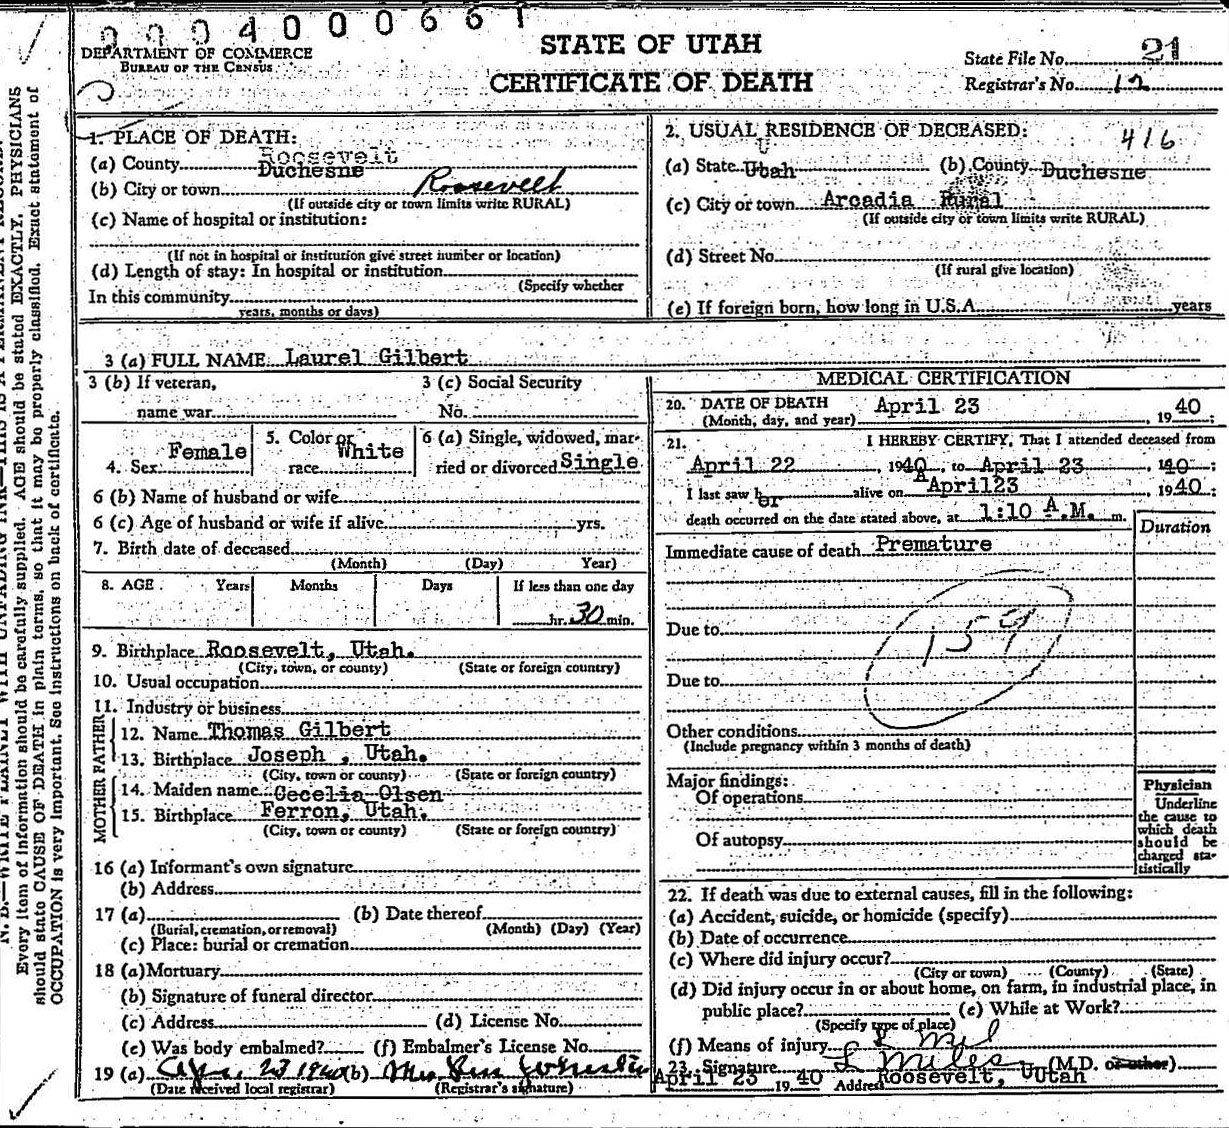 0004000661
DEPARTMENT OF COMMERCE
BUREAU OF THE CENSUS
STATE OF UTAH
CERTIFICATE OF DEATH
State File No. 21
Registrar's No. 12
1. PLACE OF DEATH:
(a) County Roosevelt Duchesne
(b) City or town Roosevelt
(If outside city or town limits write RURAL)
(c) Name of hospital or institution:
(If not in hospital or institution give street number or location)
(d) Length of stay: In hospital or institution
(Specify whether
In this community
years, months or days)
2. USUAL RESIDENCE OF DECEASED: 416
(a) State Utah (b) County Duchesne
(c) City or town Arcadia Rural
(If outside city or town limits write RURAL)
(d) Street No.
(If rural give location)
(e) If foreign born, how long in U.S.A. years
3 (a) FULL NAME Laurel Gilbert
3 (b) If veteran,
name war
3 (c) Social Security
No.
4. Sex Female
5. Color or race White
6 (a) Single, widowed, mar-
ried or divorced Single
6 (b) Name of husband or wife
6 (c) Age of husband or wife if alive yrs.
7. Birth date of deceased
(Month) (Day) Year)
8. AGE Years Months Days If less than one day
hr. 30 min.
9. Birthplace Roosevelt, Utah.
(City, town, or county) (State or foreign country)
10. Usual occupation
11. Industry or business
FATHER
12. Name Thomas Gilbert
13. Birthplace Joseph , Utah.
(City, town or county) (State or foreign country)
MOTHER
14. Maiden name Cecelia Olsen
15. Birthplace Ferron, Utah.
(City, town or county) (State or foreign country)
16 (a) Informant's own signature
(b) Address
17 (a) (b) Date thereof
(Burial, cremation, or removal) (Month) (Day) (Year)
(c) Place: burial or cremation
18 (a) Mortuary
(b) Signature of funeral director
(c) Address (d) License No.
(e) Was body embalmed? (f) Embalmer's License No.
19 (a) Apr. 23 1940 (b) Mrs
(Date received local registrar) (Registrar's signature)
MEDICAL CERTIFICATION
20. DATE OF DEATH April 23 1940;
(Month, day, and year)
21. I HEREBY CERTIFY, That I attended deceased from
April 22, 1940, to April 23, 1940;
I last saw her alive on April23 1940;
death occurred on the date stated above, at 1:10 A.M. m.
Duration
Immediate cause of death Premature
159
Due to
Due to
Other conditions
(Include pregnancy within 3 months of death)
Major findings:
Of operations
Of autopsy
Physician
Underline
the cause to
which death
should be
charged sta-
tistically
22. If death was due to external causes, fill in the following:
(a) Accident, suicide, or homicide (specify)
(b) Date of occurrence
(c) Where did injury occur?
(City or town) (County) (State)
(d) Did injury occur in or about home, on farm, in industrial place, in
public place? (e) While at Work?
(Specify type of place)
(f) Means of injury L Mil
23. Signature L Miles (M.D. or other)
April 23 1940 Address Roosevelt, Utah
N. B.—WRITE PLAINLY WITH UNFADING INK—THIS IS A PERMANENT RECORD.
Every item of information should be carefully supplied. AGE should be stated EXACTLY. PHYSICIANS
should state CAUSE OF DEATH in plain terms, so that it may be properly classified. Exact statement of
OCCUPATION is very important. See instructions on back of certificate.